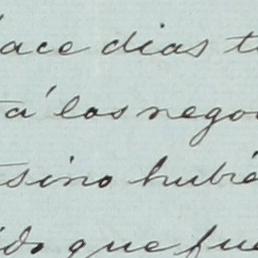 hace dias t
tá los nego
sino hubie
ido que fue